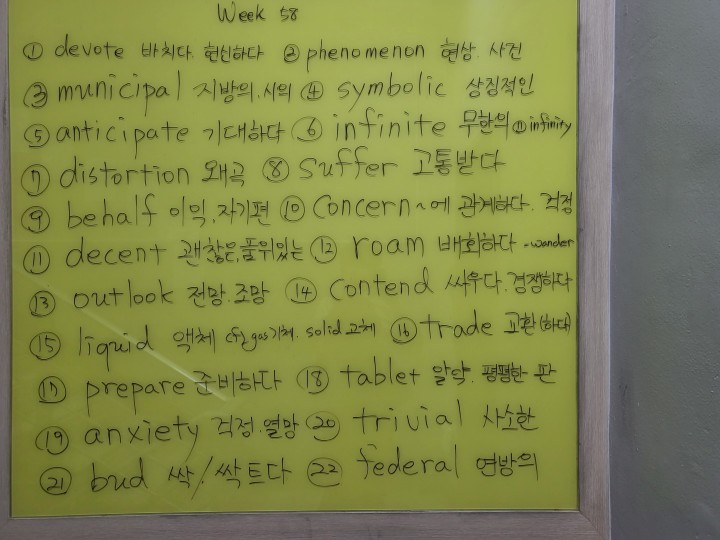 Week 58
① devote 바치다. 헌신하다 ② phenomenon 현상. 사건
③ municipal 지방의. 시의 ④ symbolic 상징적인
⑤ anticipate 기대하다 ⑥ infinite 무한의 ⓝ infinity
⑦ distortion 왜곡 ⑧ suffer 고통받다
⑨ behalf 이익. 자기편 ⑩ concern ~에 관계하다. 걱정
⑪ decent 괜찮은, 품위있는 ⑫ roam 배회하다 - wander
⑬ outlook 전망. 조망 ⑭ contend 싸우다. 경쟁하다
⑮ liquid 액체 cf) gas 기체. solid 고체 ⑯ trade 교환(하다)
⑰ prepare 준비하다 ⑱ tablet 알약. 평평한 판
⑲ anxiety 걱정. 열망 ⑳ trivial 사소한
㉑ bud 싹/싹트다 ㉒ federal 연방의